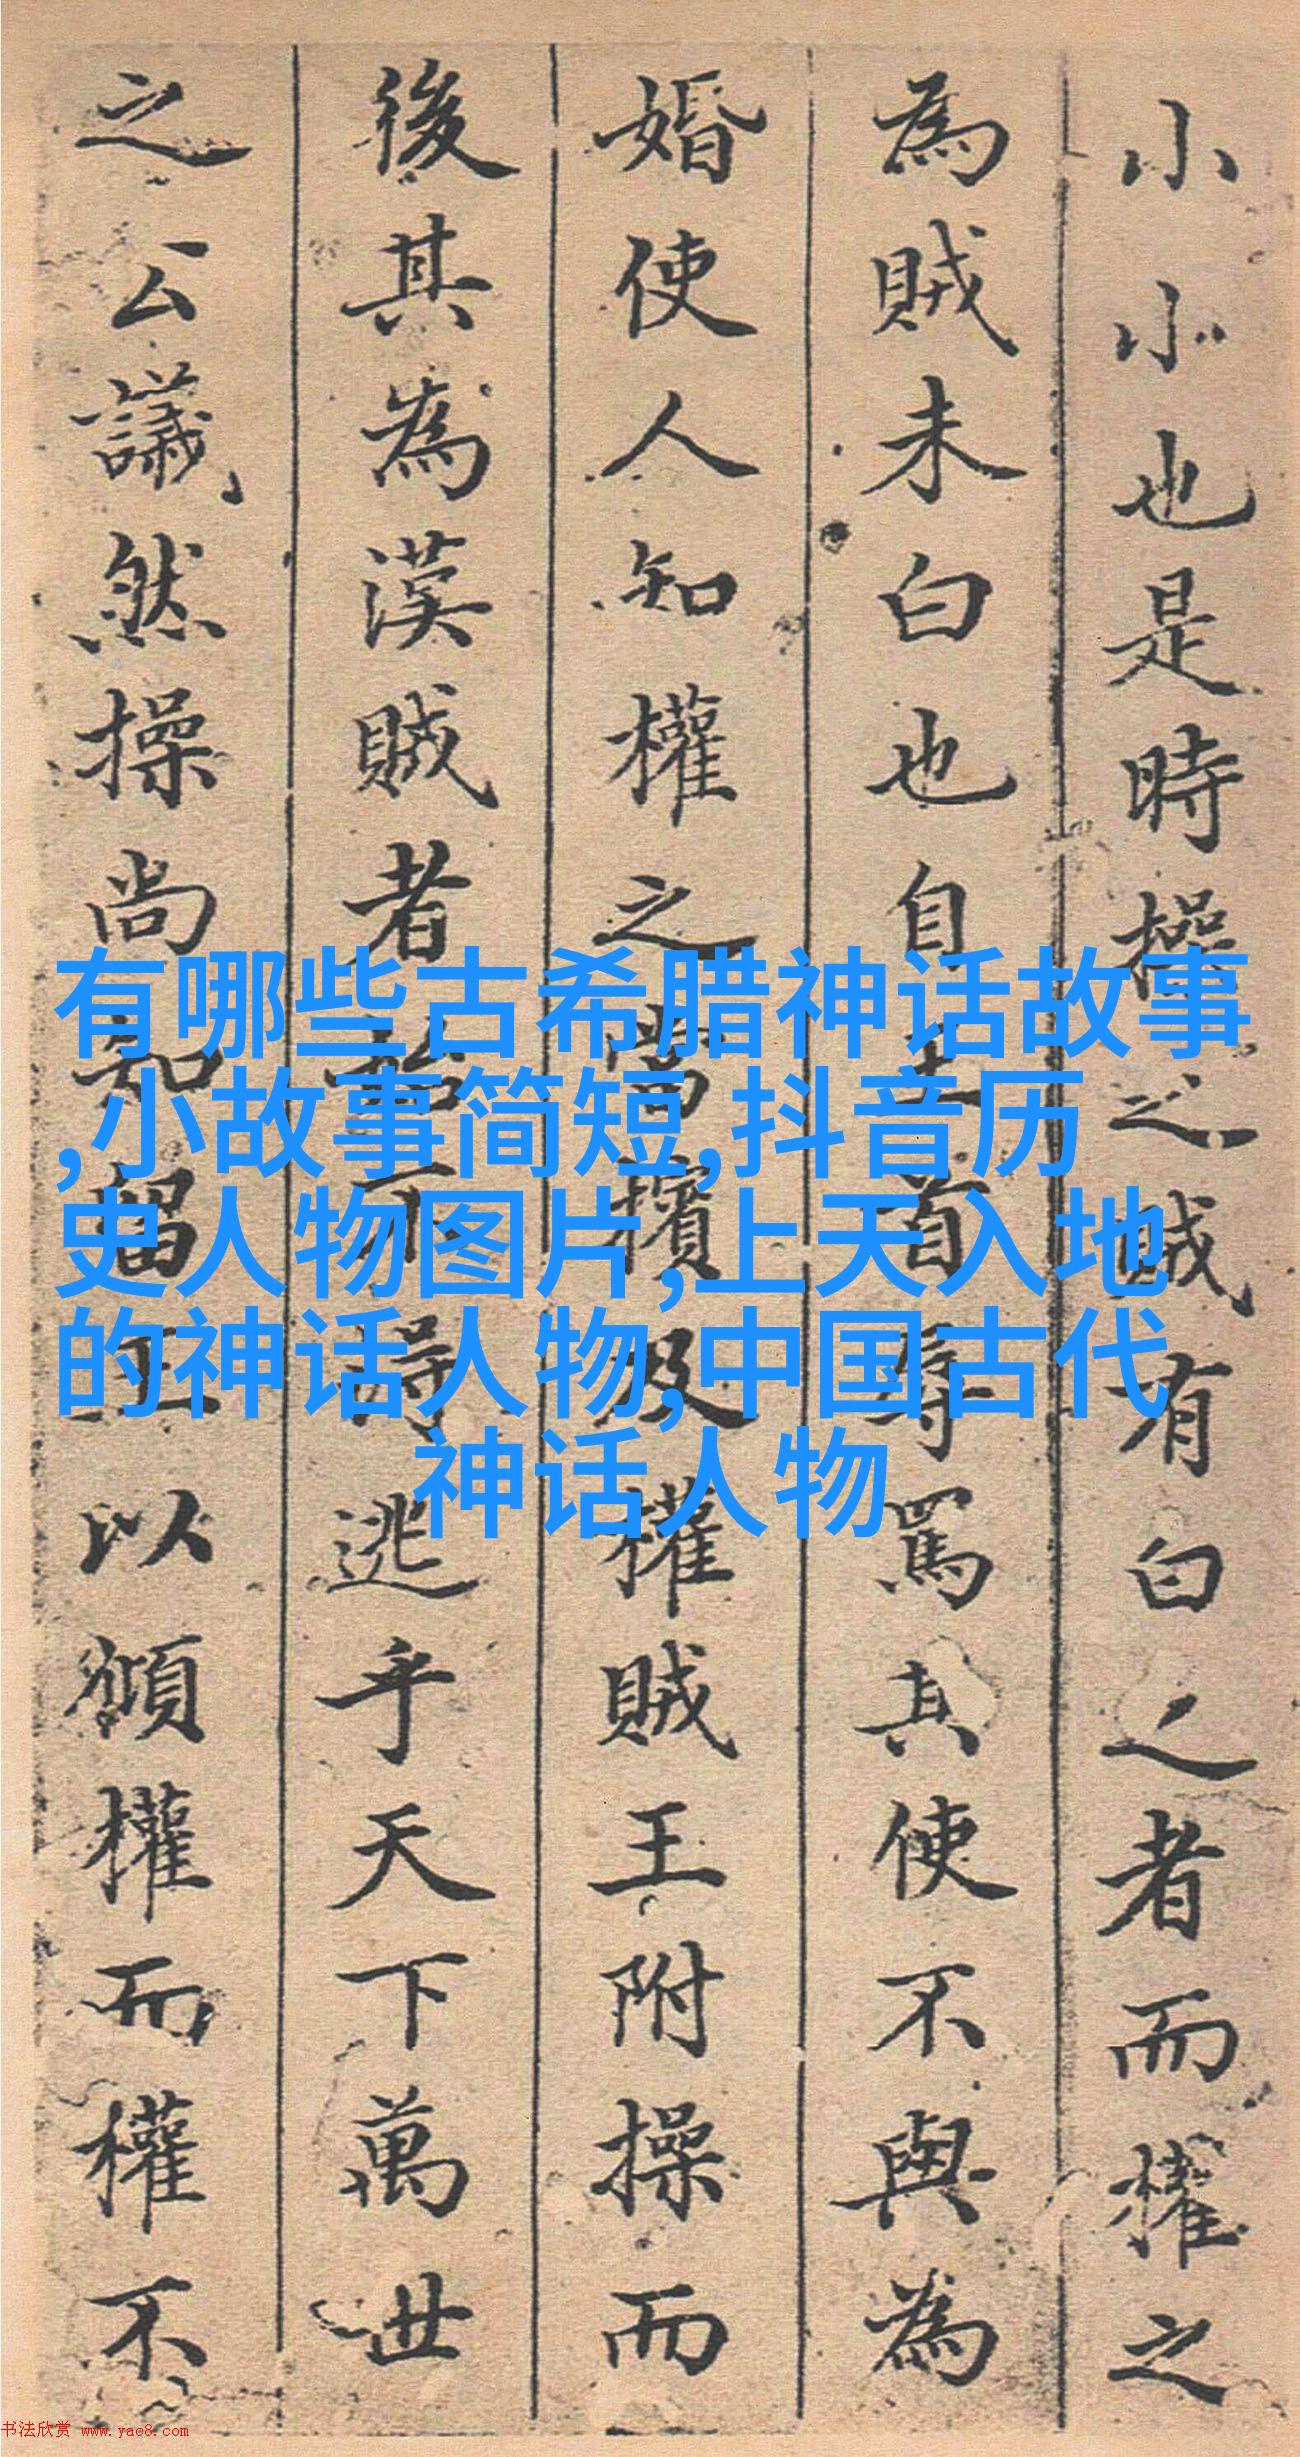 小小也是時操之賊有白之者而權之
為賊未白也自王首辱罵其使不與為
婚使人知權之當擯及權賊王附操而
後其為漢賊者始不得逃乎天下萬世
之公議然操尚知留王以頡權而權不
有哪些古希腊神话故事
,小故事简短,抖音历
史人物图片,上天入地
的神话人物,中国古代
神话人物
书法欣赏 www.yac8.com